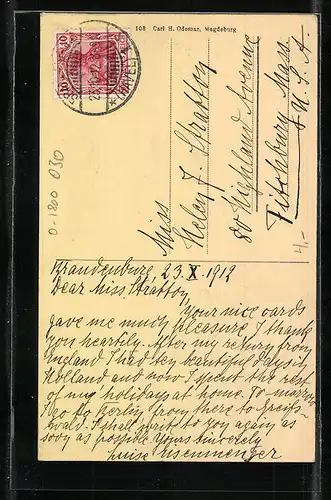 108 Carl H. Odemar, Magdeburg
Miss
Helen J. Stratton
84 Highland Avenue
Fitchburg Mass.
U. S. A.
4,-
0-1800 030
Brandenburg, 23. X. 1912
Dear Miss Stratton,
Your nice cards
gave me much pleasure. I thank
you heartily. After my return from
England I had ten beautiful days in
Holland and now I spent the rest
of my holidays at home. To-morrow
I go to Berlin from there to Greifs-
wald. I shall write to you again as
soon as possible. Yours sincerely
Luise Eisenmenger